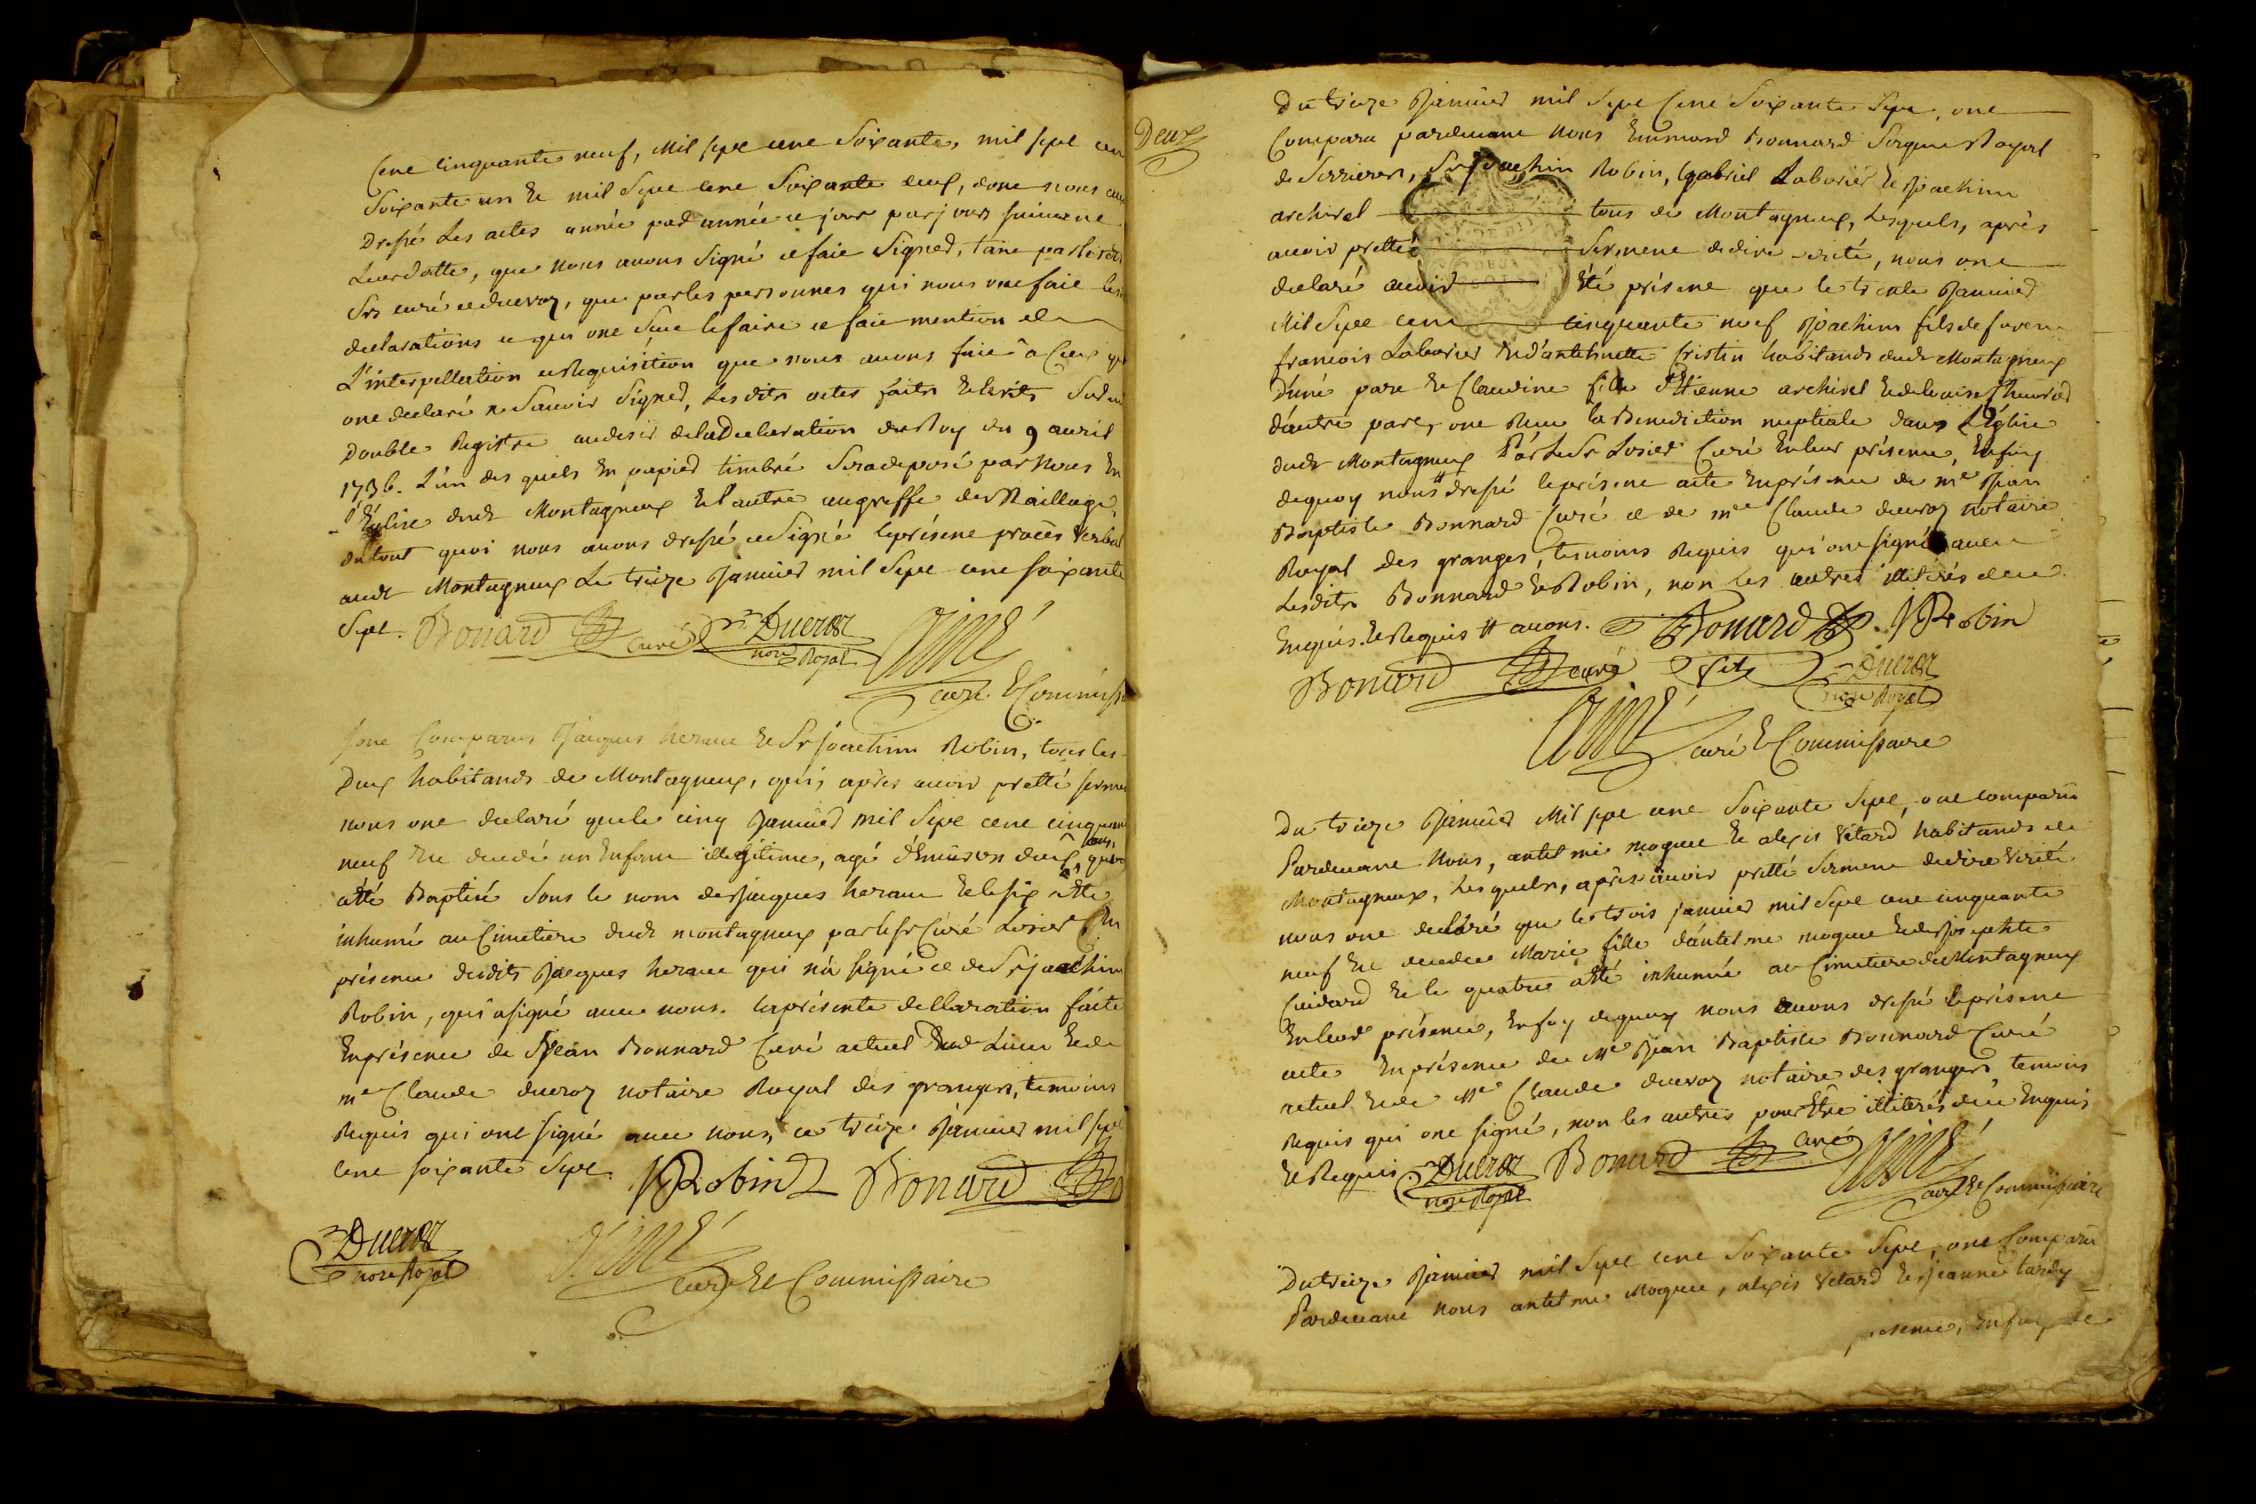 Cent Cinquante neuf, Mil sept cent Soixante, mil sept cen
Soixante un Et mil Sept cent Soixante deux, dont nous avo
Dressé Les actes année par année et jour par jour suivant
Leur datte, que nous avons Signé et fait Signer, tant par lesd
Srs curé et ducroz, que par les personnes qui nous ont fait les
declarations et qui ont Sceu le faire et fait mention de
L'interpellation et Requisition que nous avons fait a Ceux qui
ont declaré ne Sauoir Signer, Lesdits actes faits Et Ecrits Sur un
Double Registre au desir dela Declaration du Roy du 9 avril
1736. L'un des quels En papier timbré Sera deposé par Nous En
l'Eglise dudt Montagneux Et l'autre au greffe du Bailliage,
du tout quoi nous avons dressé et Signé le présent procès Verbal
audt Montagneux Le treize Janvier mil Sept cent soixante
Sept. Bonard curé Ducroz
nore Royal Aimé
curé & Commissa
sont Comparus Jacques heraut Et Sr joachim Robin, tous les
Deux habitands de Montagneux, qui, après avoir pretté serme
nous ont declaré que le cinq Janvier mil Sept cent cinquan
neuf Est decedé un Enfant illegitime, agé d'Environ deux ans, qui
atté Baptisé Sous le nom de Jacques heraut Et le six atté
inhumé au Cimetiere dudt montagneux par le Sr Curé Losier En
présence desdits Jacques heraut qui n'a signé et de Sr joachim
Robin, qui a signé avec nous. la présente declaration faite
En présence de Sr Jean Bonnard Curé actuel dud. Lieu Et de
me Claude ducroz notaire Royal des granges, temoins
Requis qui ont signé avec nous, ce treize Janvier mil sept
Cent soixante Sept. J Robin Bonard
Ducroz
nore Royal Aimé
curé Et Commissaire
Deux
Du treize Janvier mil Sept Cent Soixante Sept, ont
Comparu pardevant nous Enimond Bonnard Sergent Royal
de Serrieres, Sr Joachim Robin, Gabriel Laborier Et Joachim
archirel tous de Montagneux, Lesquels, après
avoir pretté Serment de dire verité, nous ont
declaré avoir Eté présent que le trente Janvier
Mil Sept cent cinquante neuf Joachim fils de
francois Laborier Et d'antelmette Cristin habitands dudt Montagneux
D'une part Et Claudine fille d'Etienne archirel Et de
d'autre part, ont Receu la Benediction nuptiale dans L'église
dudt Montagneux Par Le Sr Losier Curé En leur présence, En foy
de quoy nous # dressé le présent acte En présence de me Jean
Baptiste Bonnard Curé et de me Claude ducroz notaire
Royal des granges, temoins Requis qui ont signé avec
Lesdits Bonnard Et Robin, non les autres illiterés de ce
Enquis. Et Requis # avons. Bonard J Robin
Bonard curé Ducroz
nore Royal
Aimé curé & Commissaire
Du treize Janvier Mil sept cent Soixante Sept, ont comparu
Pardevant Nous, antelme moquet Et alexis Vetard habitands de
Montagneux, Lesquels, après avoir pretté Serment de dire Verité
nous ont declaré que le trois janvier mil Sept cent cinquante
neuf Est decedée Marie fille d'antelme moquet Et de Josephte
Cuidard Et le quatre atté inhumée au Cimetiere de Montagneux
En leur présence, En foy de quoy nous avons dressé le présent
acte En présence de Me Jean Baptiste Bonnard Curé
actuel Et de Me Claude ducroz notaire des granges temoins
Requis qui ont signé, non les autres pour Etre illiterés de ce Enquis
Et Requis Ducroz Bonard curé Aimé
nore Royal curé Et Commissaire
Du treize Janvier mil Sept cent Soixante Sept, ont Comparu
Pardevant nous antelme Moquet, alexis Vetard Et Jeanne tardy
présence, En foy de